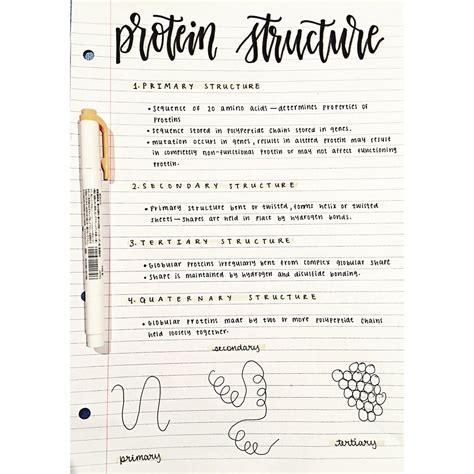 protein structure
1. PRIMARY STRUCTURE
• Sequence of 20 amino acids—determines properties of
proteins
• Sequence stored in polypeptide chains stored in genes.
• mutation occurs in genes, results in altered protein may result
in completely non-functional protein or may not affect functioning
protein.
2. SECONDARY STRUCTURE
• Primary structure bent or twisted, forms helix or twisted
sheets—shapes are held in place by hydrogen bonds.
3. TERTIARY STRUCTURE
• Globular proteins irregularly bent from complex globular shape
• Shape is maintained by hydrogen and disulfide bonding.
4. QUATERNARY STRUCTURE
• Globular proteins made by two or more polypeptide chains
held loosely together.
secondary
primary
tertiary